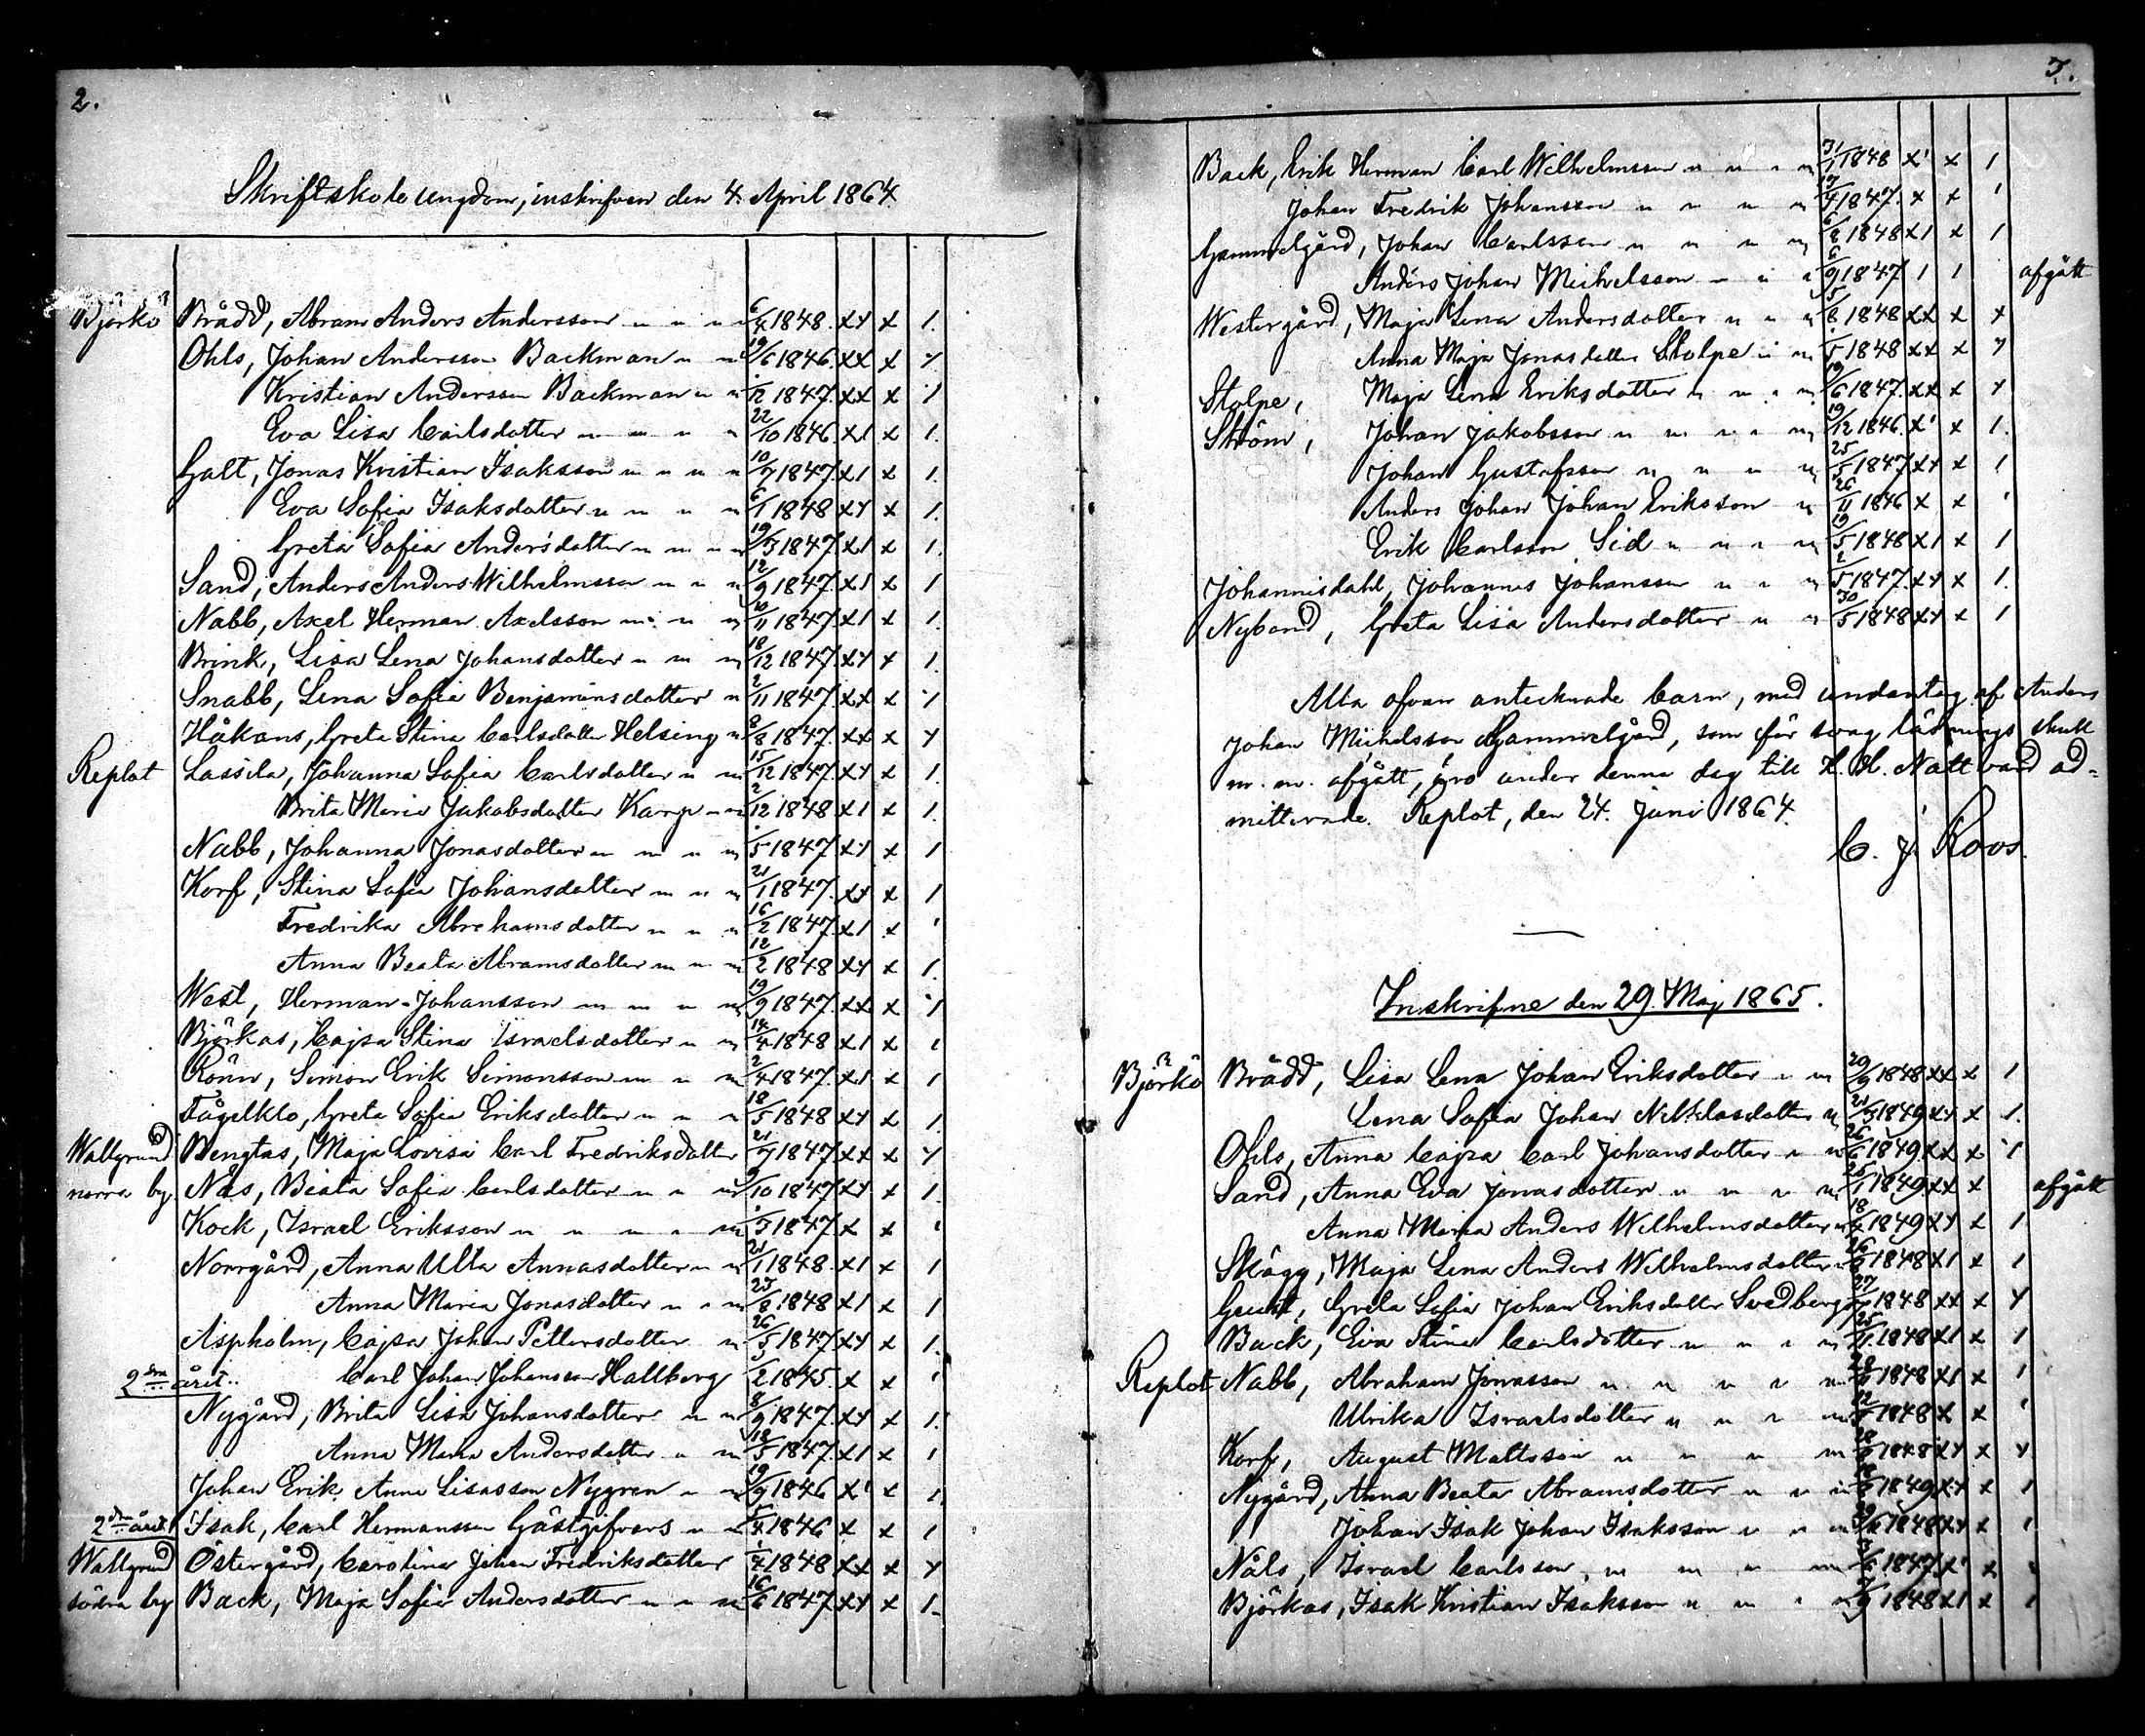 2.
Skriftskole ungdom, inskrifven den 4. April 1864.
Björkö Brådd, Abram Anders Andersson 6/4 1848. xx x 1.
Ohls, Johan Andersson Backman 19/6 1846. xx x
Kristian Andersson Backman /12 1847. xx x 1
Eva Lisa Carlsdotter 22/10 1846. x1 x 1.
Galt, Jonas Kristian Isaksson 10/7 1847. x1 x 1.
Eva Sofia Isaksdotter 6/1 1848 x x 1.
Greta Sofia Andersdotter 19/3 1847. x1 x 1.
Sand, Anders Anders Wilhelmsson 12/9 1847. x1 x 1
Nabb, Axel Herman Axelsson /11 1847 x1 x 1.
Brink, Lisa Lena Johansdotter 18/12 1847. 1.
Snabb, Lena Sofia Benjaminsdotter 2/11 1847. xx x 1
Håkans, Greta Stina Carlsdotter Helsing 8/8 1847. xx x
Replot Lassila, Johanna Sofia Carlsdotter 15/12 1847. x 1.
Brita Maria Jakobsdotter Karp 2/12 1848 x1 x 1.
Nabb, Johanna Jonasdotter /5 1847. x 1
Korf, Stina Sofia Johansdotter 21/1 1847. x 1
Fredrika Abrahamsdotter 16/2 1847. x1 x
Anna Beata Abramsdotter 12/2 1848 x 1.
West, Herman Johansson 19/9 1847. xx x
Björkas, Cajsa Stina Israelsdotter 14/4 1848 x1 x
Rönn, Simon Erik Simonsson 2/4 1847. x1 x 1
Fågelklo, Greta Sofia Eriksdotter 18/5 1848 x 1.
Wallgrund Bengtas, Maja Lovisa Carl Fredriksdotter 21/7 1847 xx x
norra by Nås, Beata Sofia Carlsdotter /10 1847 x 1.
Kock, Israel Eriksson /5 1847 x x
Norrgård, Anna Ulla Annasdotter 21/1 1848. x1 x 1
Anna Maria Jonasdotter 25/8 1848 x1 x 1
Aspholm, Cajsa Johan Pettersdotter 26/5 1847 x 1.
2dra året. Carl Johan Johansson Hallberg /2 1845. x x
Nygård, Brita Lisa Johansdotter 8/9 1847. x 1.
Anna Maria Andersdotter 18/5 1847. x1 x 1
Johan Erik Anna Lisasson Nygren 19/9 1846 x' x 1.
2dra året Isak, Carl Hermansson Gästgifvars /4 1846 x x 1
Wallgrund Östergård, Carolina Johan Fredriksdotter /4 1848 xx x
södra by Back, Maja Sofia Andersdotter 16/6 1847 x 1.
3.
Back, Erik Herman Carl Wilhelmsson 31/1 1848 x' x 1
Johan Fredrik Johansson 17/4 1847. x x '
Gammelgård, Johan Carlsson 6/8 1848 x1 x 1
Anders Johan Michelsson 6/9 1847 1 1 afgått
Westergård, Maja Lena Andersdotter 5/8 1848 xx x x
Anna Maja Jonasdotter Stolpe /5 1848 xx x
Stolpe, Maja Lena Eriksdotter 19/6 1847. xx x
Ström, Johan Jakobsson 19/12 1846. x' x 1.
Johan Gustafsson 25/5 1847 x 1
Anders Johan Johan Eriksson 26/11 1846 x x '
Erik Carlsson Sid 19/5 1848 x1 x 1
Johannisdahl, Johannes Johansson 2/5 1847. x 1.
Nybond, Greta Lisa Andersdotter 30/5 1848 x 1
Alla ofvan antecknade barn, med undantag af Anders
Johan Michelsson Gammelgård, som för svag läsnings skull
m. m. afgått, äro under denna dag till H. H. Nattvard ad=
mitterade. Replot, den 24. Juni 1864.
C. J. Roos.
Inskrifne den 29. Maj 1865.
Björkö Brådd, Lisa Lena Johan Eriksdotter 20/9 1848 xx x 1
Lena Sofia Johan Nilsklasdotter 21/3 1849 x 1.
Ohls, Anna Cajsa Carl Johansdotter 26/6 1849. xx x 1
Sand, Anna Eva Jonasdotter 25/1 1849. xx x afgått
Anna Maria Anders Wilhelmsdotter 18/4 1849 x 1
Skägg, Maja Lena Anders Wilhelmsdotter 1848 x1 x 1
Greta Sofia Johan Eriksdotter Svedberg 1848 xx x
Back, Eva Stina Carlsdotter 25/11 1848 x1 x 1
Replot Nabb, Abraham Jonasson 1848 x1 x 1
Ulrika Israelsdotter 1848 x x '
Korf, August Mattsson 1848 x
Nygård, Anna Beata Abramsdotter 1849. x 1
Johan Isak Johan Isaksson 1848 x 1
Nåls, Israel Carlsson 1847. x' x
Björkas, Isak Kristian Isaksson /9 1848 x1 x 1